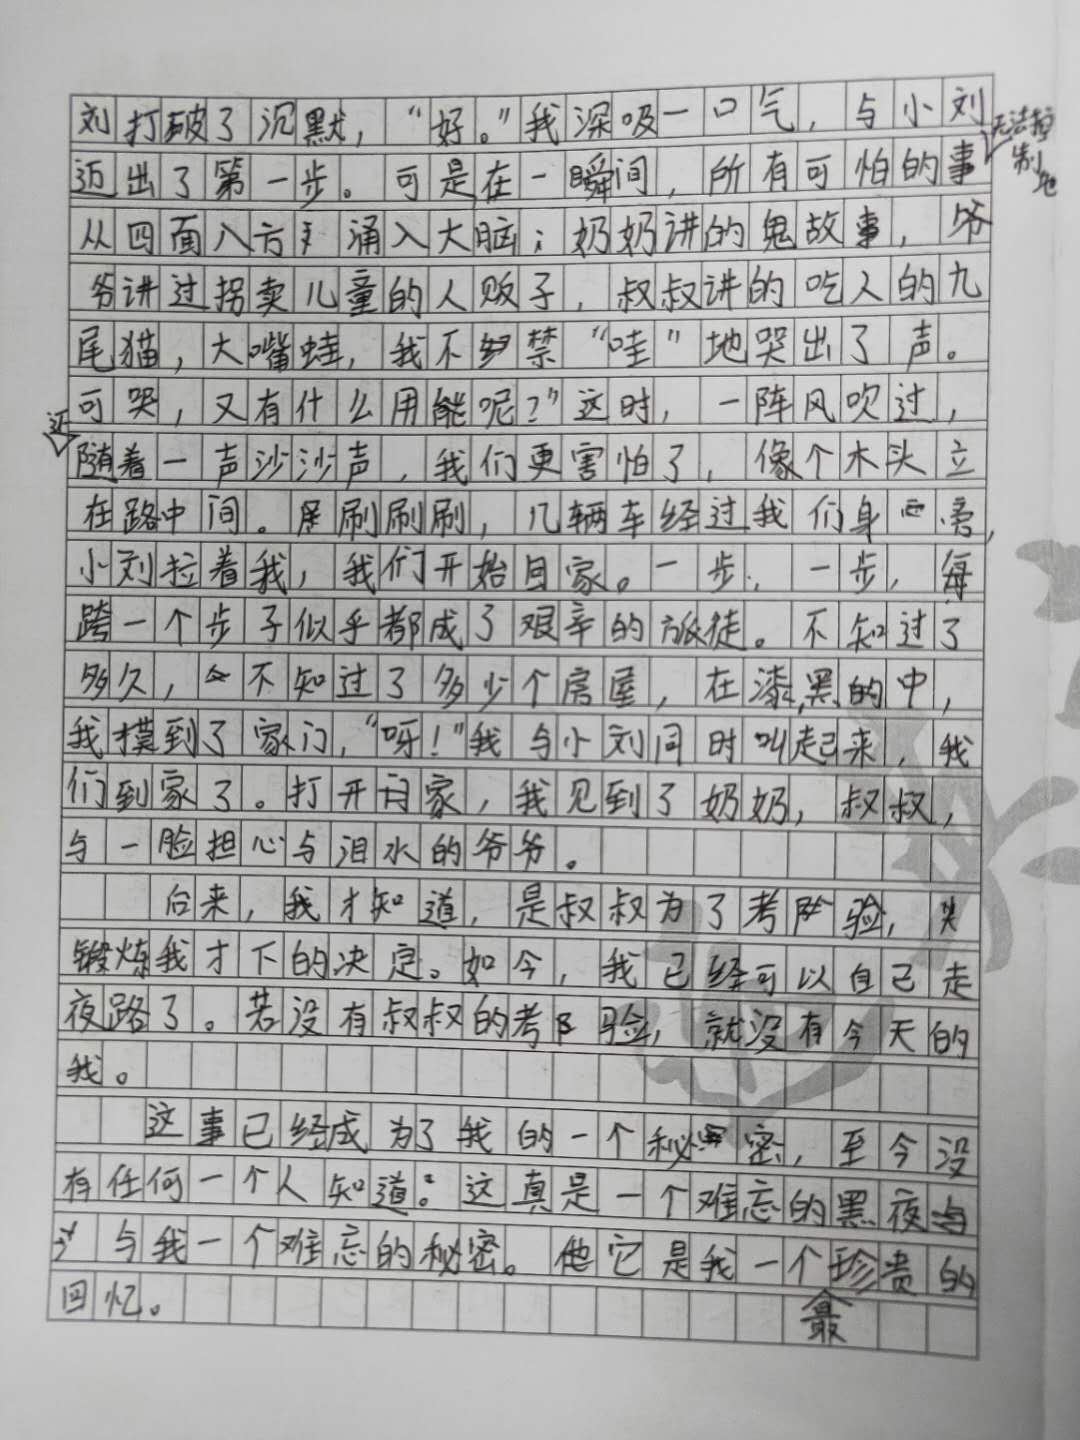 刘打破了沉默，“好。”我深吸一口气，与小刘
迈出了第一步。可是在一瞬间，所有可怕的事
无法控制地
从四面八方涌入大脑；奶奶讲的鬼故事，爷
爷讲过拐卖儿童的人贩子，叔叔讲的吃人的九
尾猫，大嘴蛙，我不禁“哇”地哭出了声。
可哭，又有什么用能呢？”这时，一阵风吹过，
随着一声沙沙声，我们更害怕了，像个木头立
在路中间。刷刷刷，几辆车经过我们身旁，
小刘拉着我，我们开始回家。一步，一步，每
跨一个步子似乎都成了艰辛的旅徒。不知过了
多久，不知过了多少个房屋，在漆黑的中，
我摸到了家门，“呀！”我与小刘同时叫起来，我
们到家了。打开家，我见到了奶奶，叔叔，
与一脸担心与泪水的爷爷。
后来，我才知道，是叔叔为了考验，
锻炼我才下的决定。如今，我已经可以自己走
夜路了。若没有叔叔的考验，就没有今天的
我。
这事已经成为了我的一个秘密，至今没
有任何一个人知道。这真是一个难忘的黑夜
与我一个难忘的秘密。它是我一个珍贵的
最
回忆。